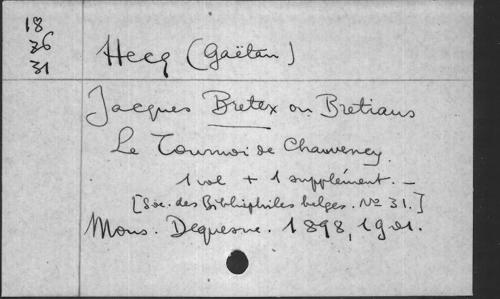 18
36
31
Hecq (Gaëtan)
Jacques Bretex ou Bretiaus
Le Tournoi de Chauvency.
1 vol + 1 supplément. –
[Soc. des Bibliophiles belges. No 31.]
Mons. Dequesne. 1898, 1901.